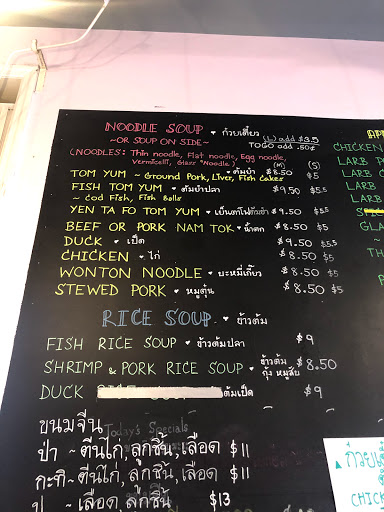 NOODLE SOUP • ก๋วยเตี๋ยว
~OR SOUP ON SIDE~ (L) add $3.5
TOGO add .50¢
(NOODLES: Thin noodle, Flat noodle, Egg noodle,
Vermicelli, Glass Noodle) (M) (S)
TOM YUM ~ Ground Pork, Liver, Fish Cakes • ต้มยำ $8.50 $5
FISH TOM YUM • ต้มยำปลา $9.50 $5.5
~ Cod Fish, Fish Balls
YEN TA FO TOM YUM • เย็นตาโฟต้มยำ $9.50 $5.5
BEEF OR PORK NAM TOK • น้ำตก $8.50 $5
DUCK • เป็ด $9.50 $5.5
CHICKEN • ไก่ $8.50 $5
WONTON NOODLE • บะหมี่เกี๊ยว $8.50 $5
STEWED PORK • หมูตุ๋น $8.50 $5
RICE SOUP • ข้าวต้ม
FISH RICE SOUP • ข้าวต้มปลา $9
SHRIMP & PORK RICE SOUP • ข้าวต้ม กุ้ง หมูสับ $8.50
DUCK ต้มเป็ด $9
ขนมจีน Today's Specials
ป่า ~ ตีนไก่, ลูกชิ้น, เลือด $11
กะทิ ~ ตีนไก่, ลูกชิ้น, เลือด $11
~ เลือด, ลูกชิ้น $13
CHICKEN
LARB
LARB
LARB
LARB
GLA
ก๋วยเตี๋
CHIC